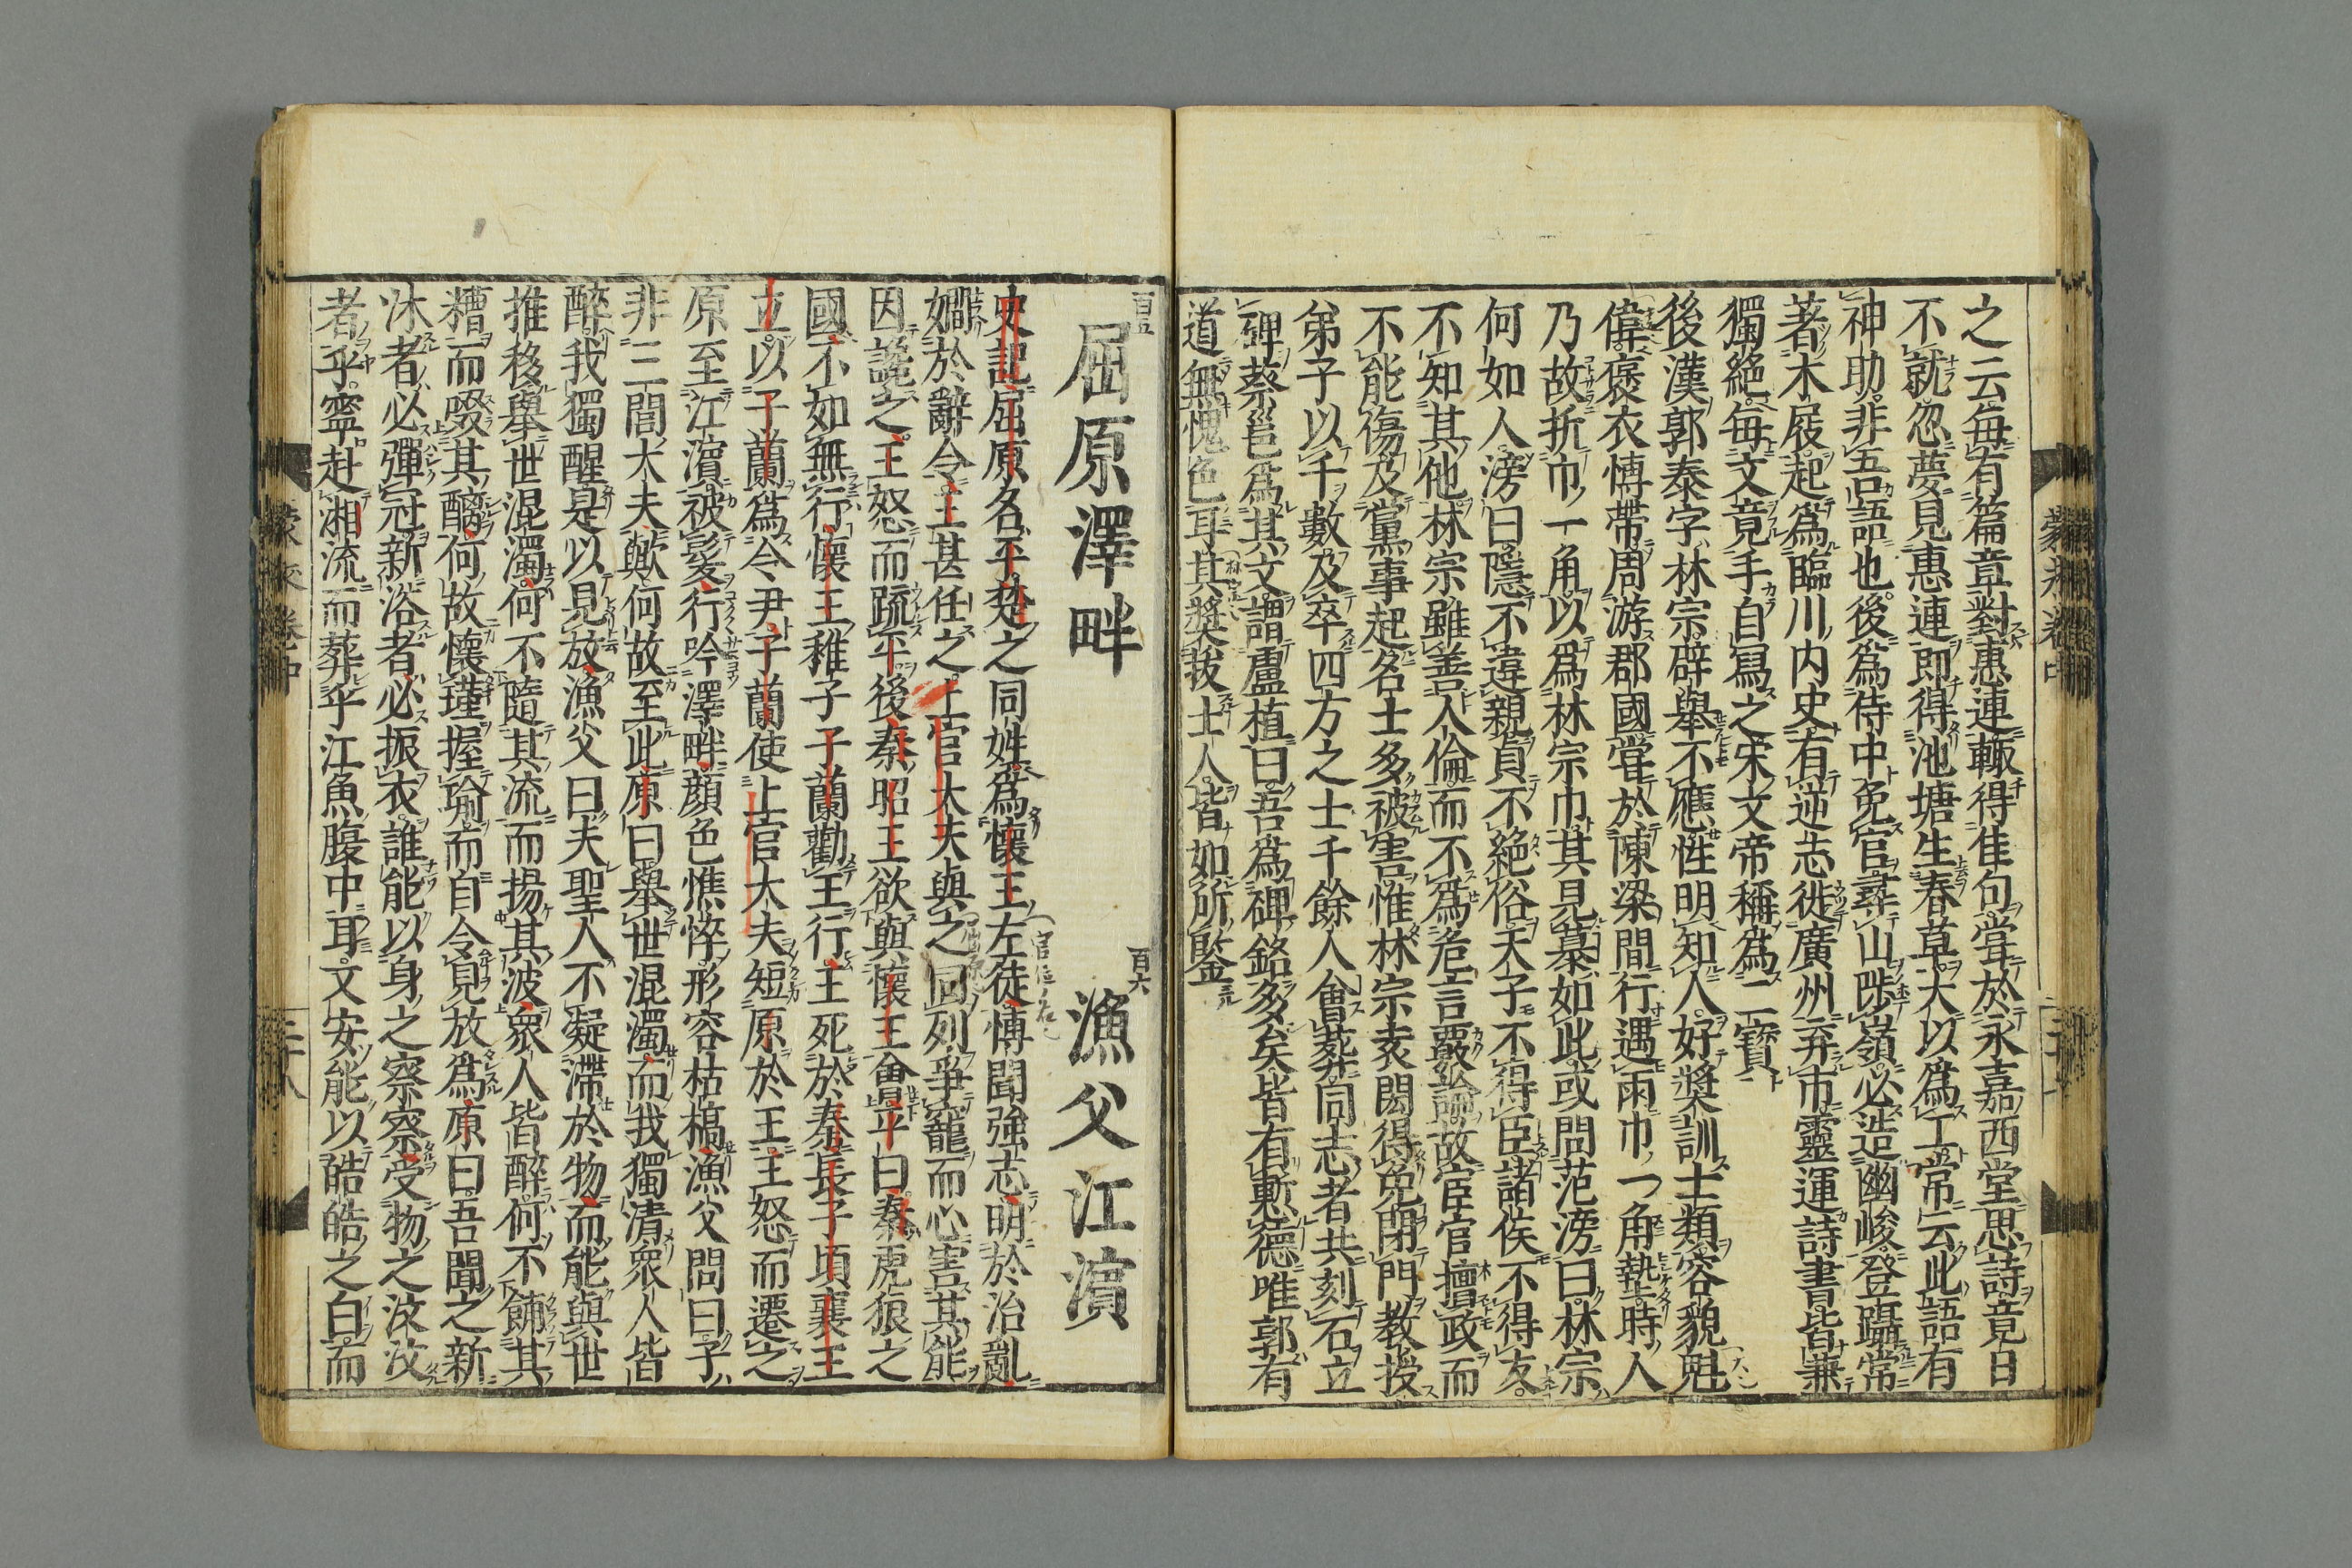 之云每有篇章對惠連輙得佳句甞於永嘉西堂思詩竟日
不就忽夢見惠連即得池塘生春草大以爲工常云此語有
神助非吾語也後爲侍中免官尋山陟嶺必造幽峻登躡常
著木屐起爲臨川内史有逆志徙廣州弃市靈運詩書皆兼
獨絶每文竟手自冩之宋文帝稱爲二寶
後漢郭泰字林宗辟舉不應性明知人好奬訓士類容貌魁
偉褒衣博帶周游郡國甞於陳梁間行遇雨巾一角墊時人
乃故折巾一角以爲林宗巾其見慕如此或問范滂曰林宗
何如人滂曰隱不違親貞不絶俗天子不得臣諸侯不得友
不知其他林宗雖善人倫而不爲危言覈論故宦官擅政而
不能傷及黨事起名士多被害惟林宗袁閎得免閉門教授
弟子以千數及卒四方之士千餘人會葬同志者共刻石立
碑蔡邕爲其文謂盧植曰吾爲碑銘多矣皆有慙德唯郭有
道無愧色耳其奬拔士人皆如所鑒
百五
屈原澤畔
百六
漁父江濱
史記屈原名平楚之同姓爲懷王左徒博聞強志明於治亂
嫺於辭令王甚任之上官大夫與之同列爭寵而心害其能
因讒之王怒而疏平後秦昭王欲與懷王會平曰秦虎狼之
國不如無行懷王稚子子蘭勸王行王死於秦長子頃襄王
立以子蘭爲令尹子蘭使上官大夫短原於王王怒而遷之
原至江濱被髮行吟澤畔顔色憔悴形容枯槁漁父問曰子
非三閭大夫歟何故至此原曰舉世混濁而我獨清衆人皆
醉我獨醒是以見放漁父曰夫聖人不凝滯於物而能與世
推移舉世混濁何不隨其流而揚其波衆人皆醉何不餔其
糟而啜其醨何故懷瑾握瑜而自令見放爲原曰吾聞之新
沐者必彈冠新浴者必振衣誰能以身之察察受物之汶汶
者乎寧赴湘流而葬乎江魚腹中耳又安能以皓皓之白而